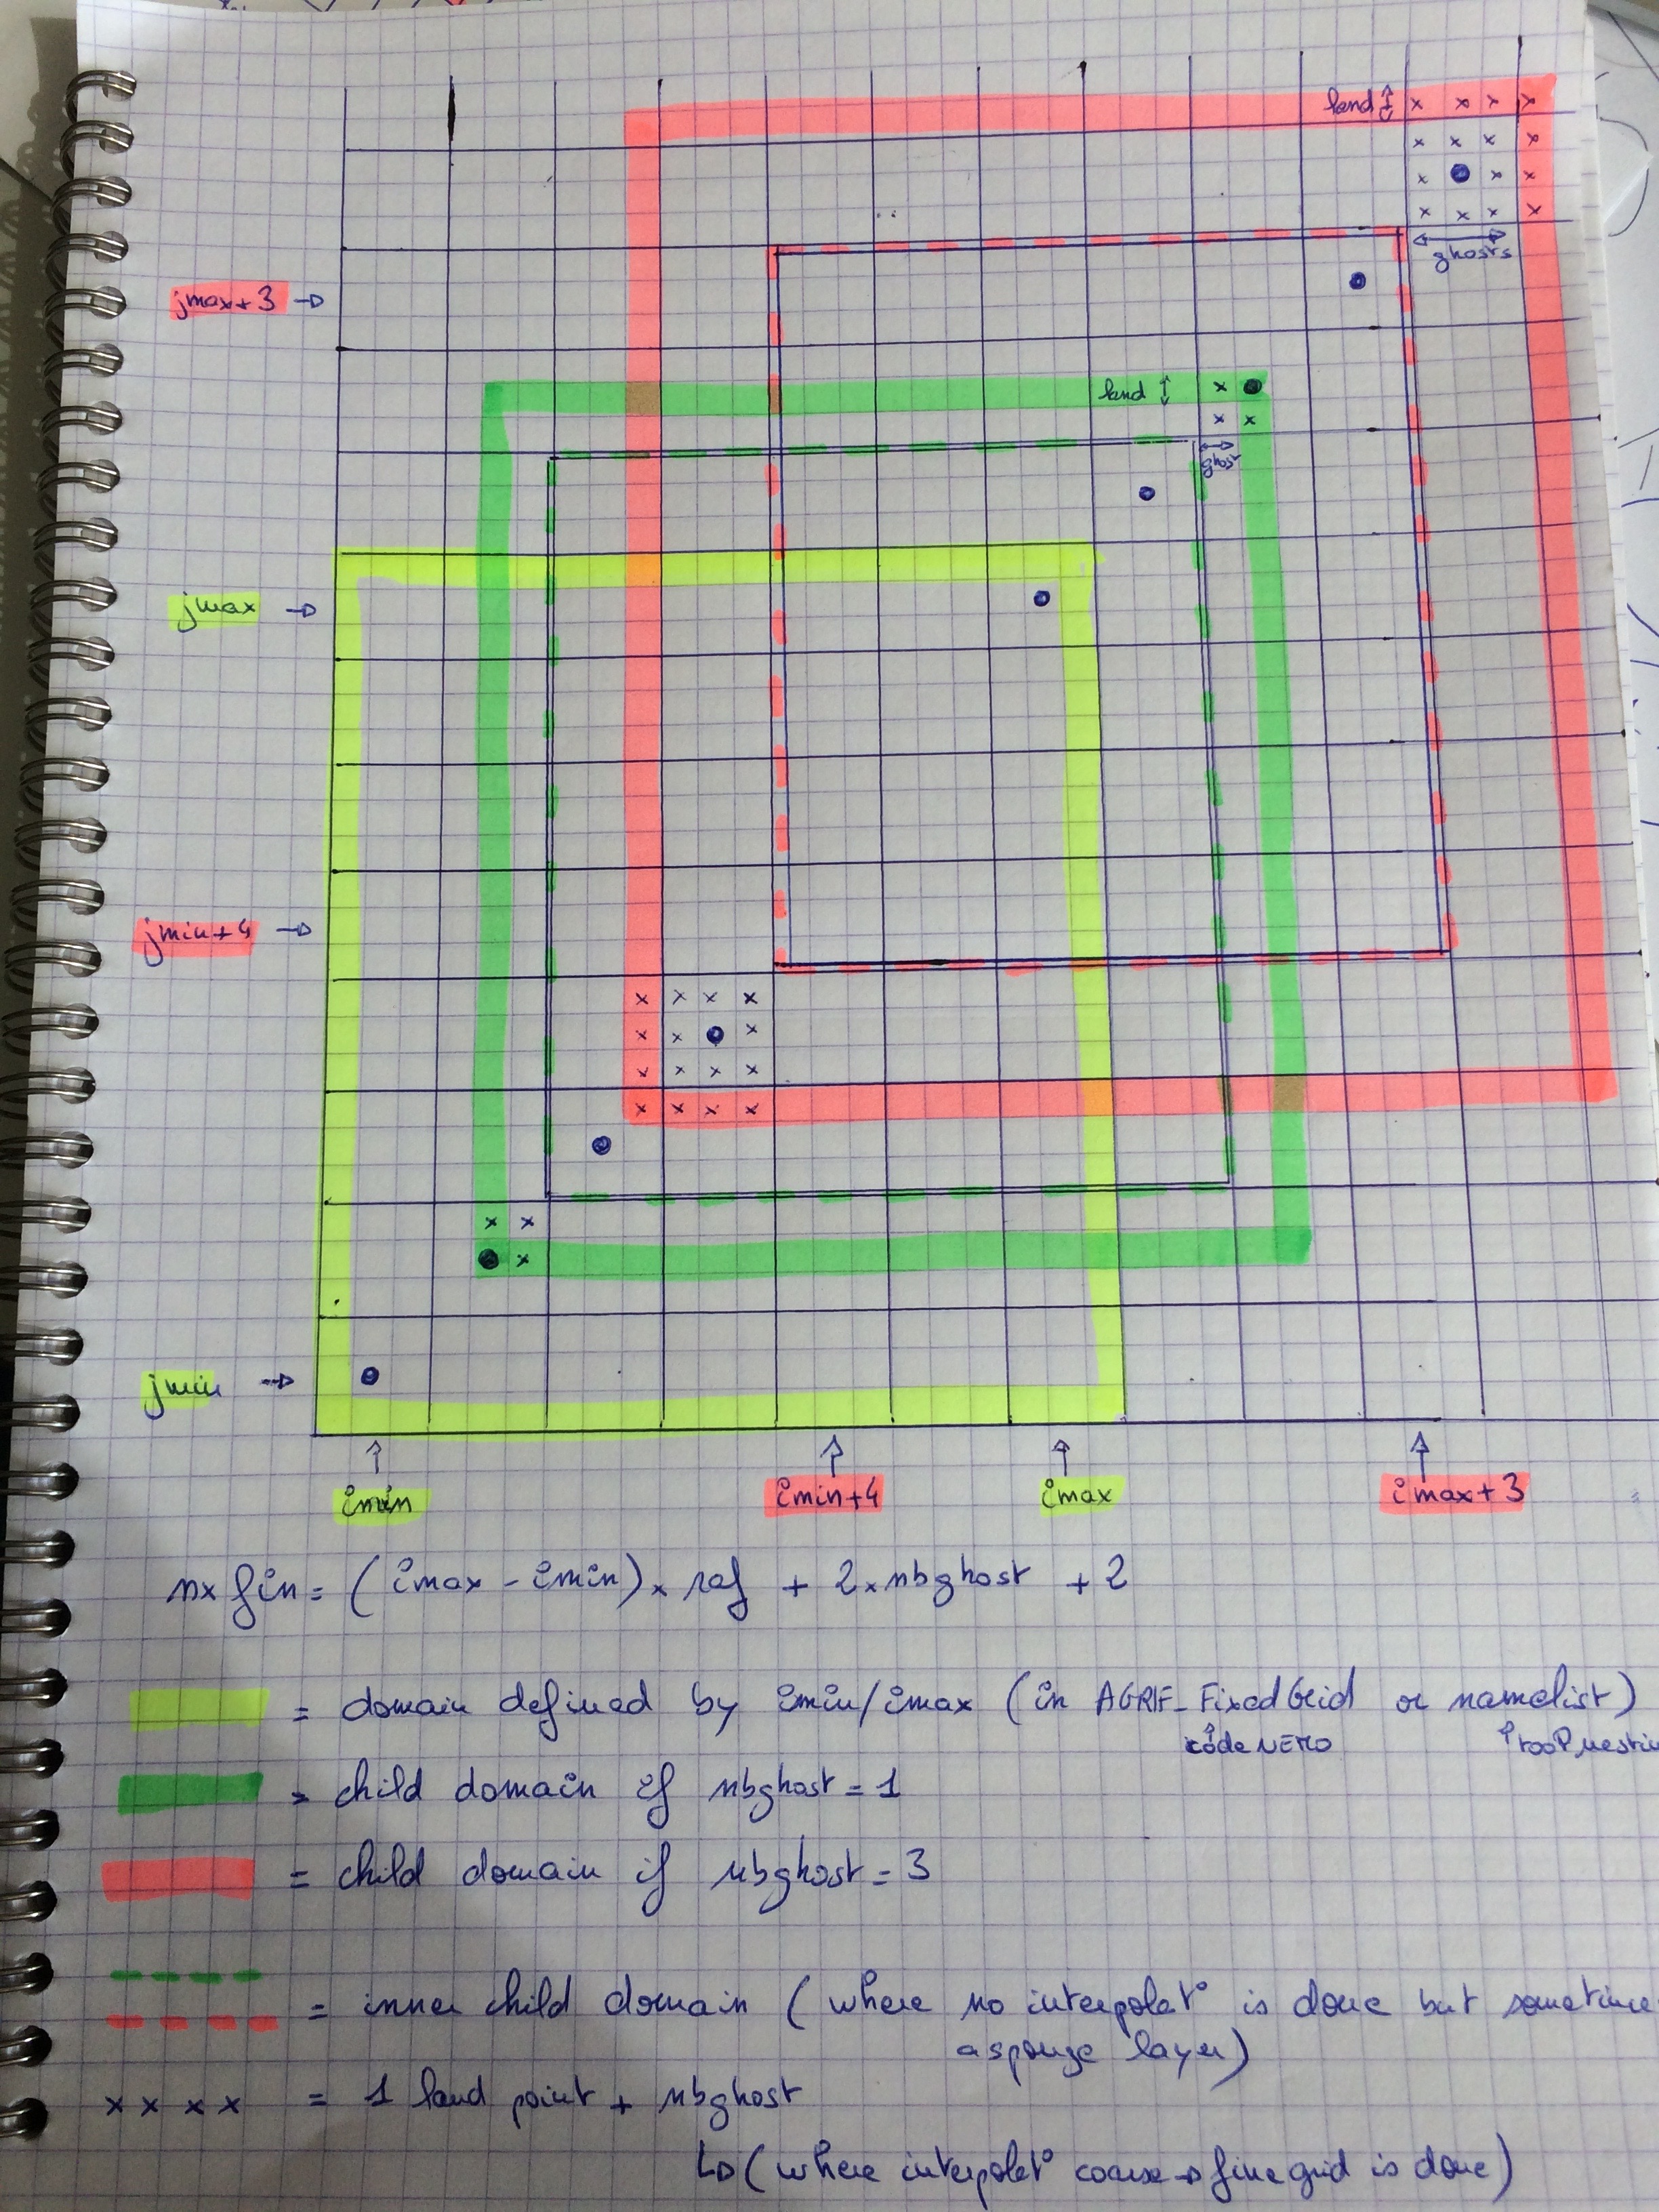 land x x x x
x x x x
x x x
x x x x
ghosts
jmax+3
land x
x x
ghost
jmax
jmin+4
x x x x
x x x
x x x x
x x x x
x x
x
jmin
imin imin+4 imax imax+3
nx fin = (imax - imin) x raf + 2 x nbghost + 2
= domain defined by imin/imax (in AGRIF_FixedGrid or namelist)
code NEMO
= child domain if nbghost = 1
= child domain if nbghost = 3
= inner child domain (where no interpolat° is done but sometime
a sponge layer)
x x x x = 1 land point + nbghost
(where interpolat° coarse → fine grid is done)